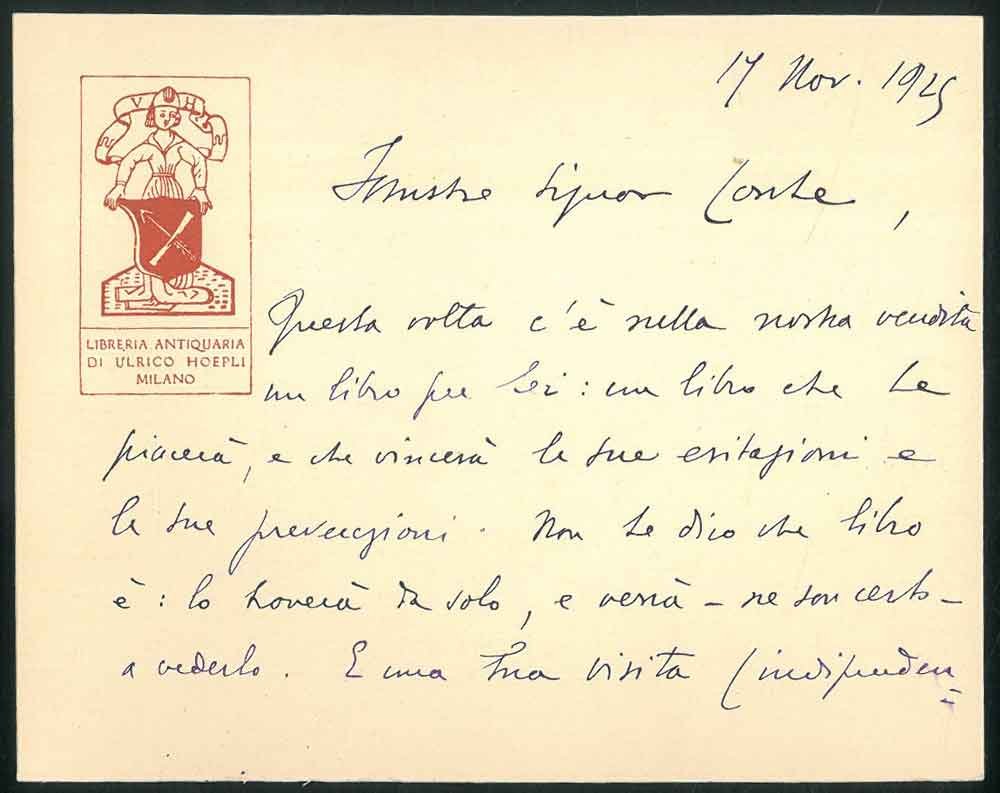 17 Nov. 1925
Illustre Signor Conte,
V H
LIBRERIA ANTIQUARIA
DI ULRICO HOEPLI
MILANO
Questa volta c'è nella nostra vendita
un libro per Lei: un libro che Le
piacerà, e che vincerà le sue esitazioni e
le sue prevenzioni. Non Le dico che libro
è: lo troverà da solo, e verrà – ne son certo –
a vederlo. E una Sua visita (indipenden-